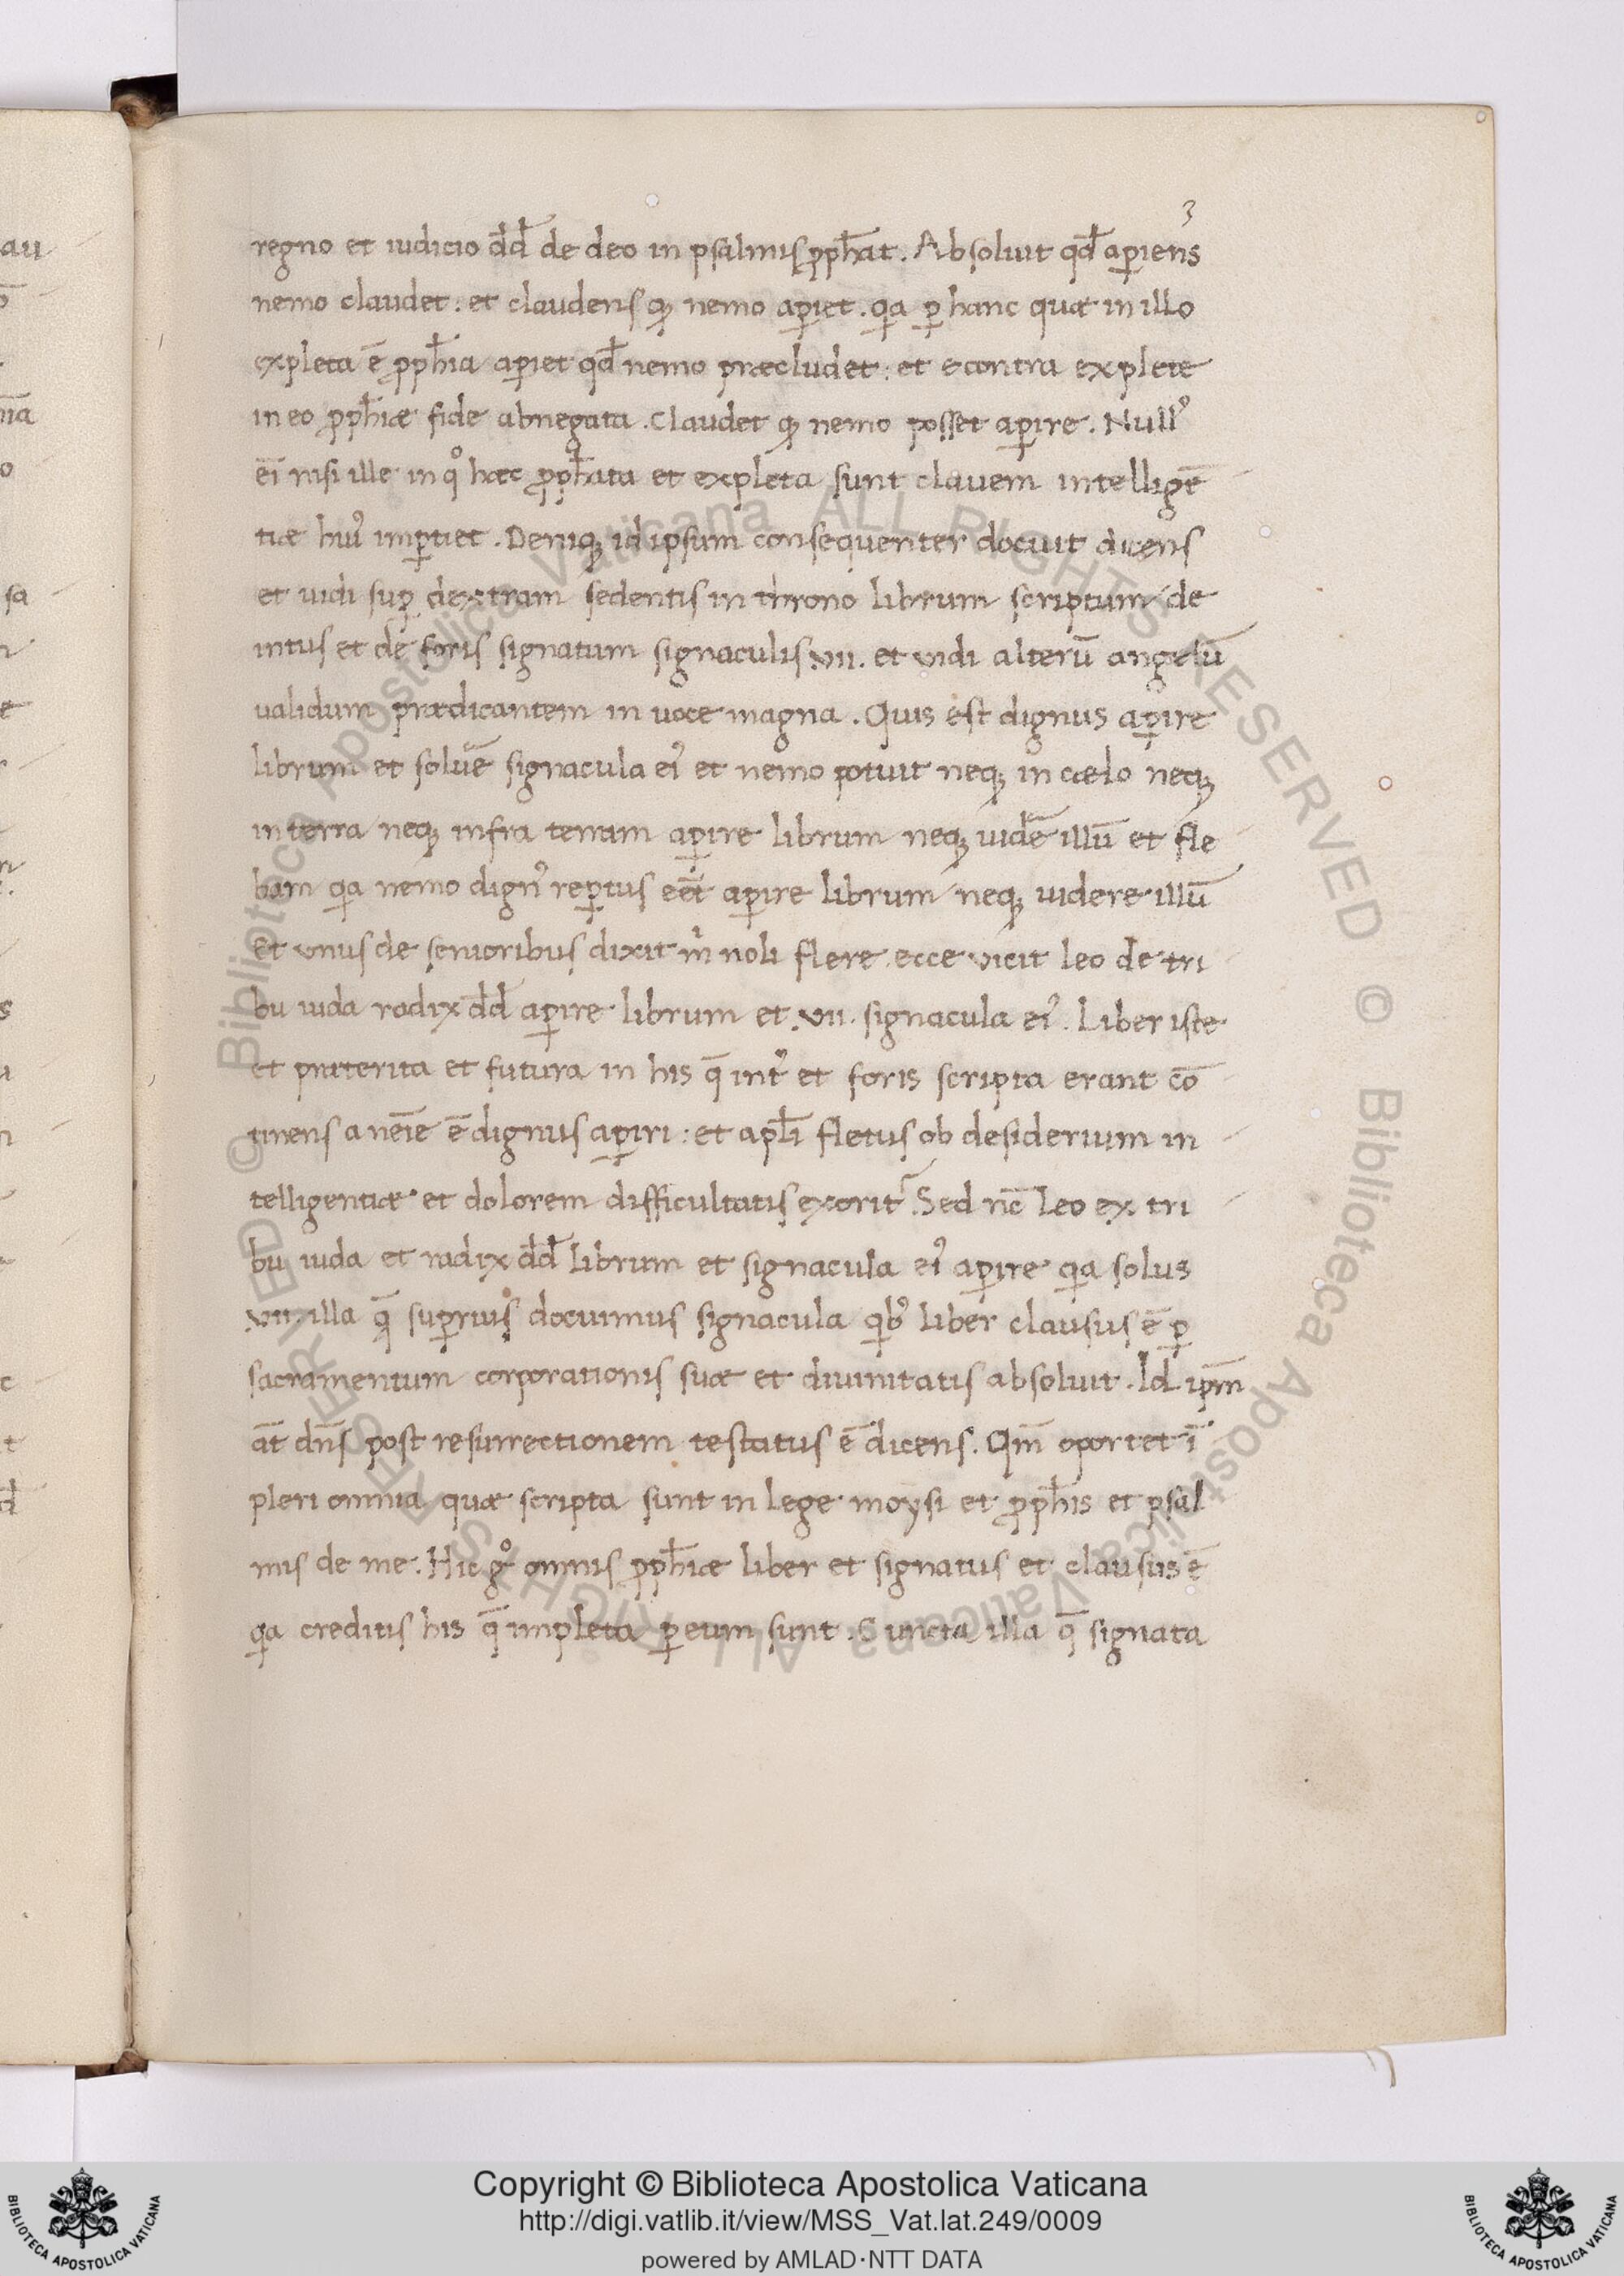 3
regno et iudicio dd̄ de deo in psalmis ꝓph̄at. Absoluit qd̄ aꝑiens
nemo claudet: et claudens qꝫ nemo aꝑiet. qa ꝑ hanc quæ in illo
expleta ē ꝓph̄ia aꝑiet qd̄ nemo præcludet: et econtra explete
in eo ꝓph̄iæ fide abnegata. Claudet qꝫ nemo posset aꝑire. Null᾽
ei̅ nisi ille in qͦ hæc ꝓph̄ata et expleta sunt clauem intelligē
tiæ hui᾽ imꝑtiet. Deniqꝫ id ipsum consequenter docuit dicens
et uidi suꝑ dextram sedentis in throno librum scriptum de
intus et de foris signatum signaculis .vii. et vidi alterū angelū
ualidum prædicantem in uoce magna. Quis est dignus aꝑire
librum et soluē signacula ei᾽ et nemo potuit neqꝫ in cælo neqꝫ
in terra neqꝫ infra terram aꝑire librum neqꝫ uidē illū et fle
bam qa nemo dign᾽ reꝑtus eēt aꝑire librum neqꝫ uidere illū
Et vnus de senioribus dixit m̄ noli flere ecce vicit leo de tri
bu iuda radix dd̄ aꝑire librum et .vii. signacula ei᾽. Liber iste
et præterita et futura in his q̄ int᾽ et foris scripta erant cō
tinens a nēīe ē dignus aꝑiri: et apl̄i fletus ob desiderium in
telligentiæ et dolorem difficultatis exorit᾽. Sed nc̄ Leo ex tri
bu iuda et radix dd̄ librum et signacula ei᾽ aꝑire qa solus
.vii. illa q̄ suꝑius docuimus signacula qb᾽ liber clausus ē ꝑ
sacramentum corporationis suæ et diuinitatis absoluit. Id ipm̄
āt dn̄s post resurrectionem testatus ē dicens. Qm̄ oportet ī
pleri omnia quæ scripta sunt in lege moysi et ꝓph̄is et psal
mis de me. Hic gͦ omnis ꝓph̄iæ liber et signatus et clausus ē
qa creditis his q̄ impleta ꝑ eum sunt. Cuncta illa q̄ signata
Copyright © Biblioteca Apostolica Vaticana
http://digi.vatlib.it/view/MSS_Vat.lat.249/0009
powered by AMLAD·NTT DATA